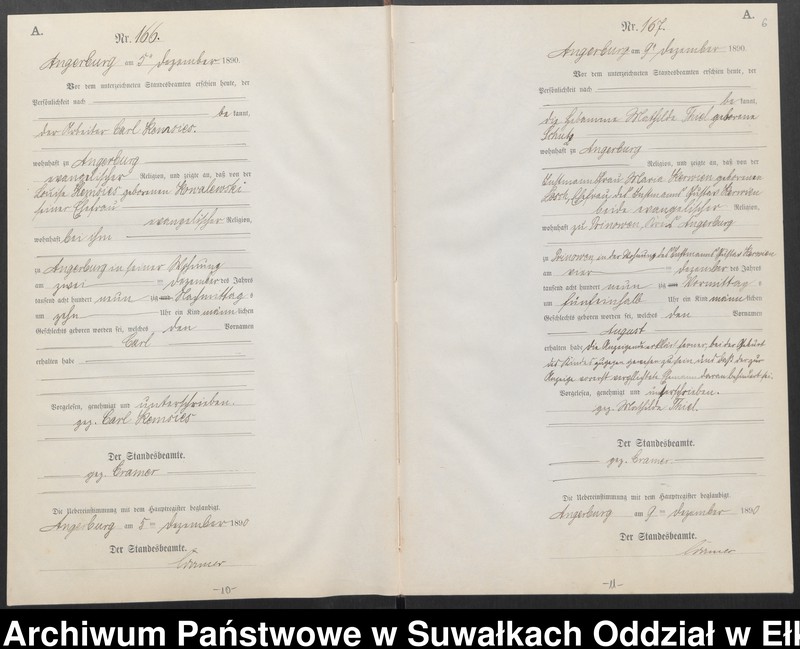 A.
Nr. 166.
Angerburg am 5t Dezember 1890.
Vor dem unterzeichneten Standesbeamten erschien heute, der
Persönlichkeit nach
be kannt,
der Arbeiter Carl
wohnhaft zu Angerburg
evangelischer Religion, und zeigte an, daß von der
Louise geborenen Kowalewski
seiner Ehefrau
evangelischer Religion,
wohnhaft bei ihm
zu Angerburg in seiner Wohnung
am zwei ten Dezember des Jahres
tausend acht hundert neun zig Nachmittag s
um zehn Uhr ein Kind männ lichen
Geschlechts geboren worden sei, welches den Vornamen
Carl
erhalten habe
Vorgelesen, genehmigt und unterschrieben.
gez. Carl
Der Standesbeamte.
gez. Cramer
Die Uebereinstimmung mit dem Hauptregister beglaubigt.
Angerburg am 5ten Dezember 1890
Der Standesbeamte.
Cramer
-10-
A.
6
Nr. 167.
Angerburg am 9t Dezember 1890.
Vor dem unterzeichneten Standesbeamten erschien heute, der
Persönlichkeit nach
be kannt,
die Hebamme Mathilde Thiel geborene
Schulz
wohnhaft zu Angerburg
Religion, und zeigte an, daß von der
Instmannsfrau Maria geborenen
Ehefrau des Instmanns Gustav
beide evangelischer Religion,
wohnhaft zu Prinowen, Kreis Angerburg
zu Prinowen in der Wohnung des Instmanns Gustav
am vier ten Dezember des Jahres
tausend acht hundert neun zig Vormittag s
um fünfeinhalb Uhr ein Kind männ lichen
Geschlechts geboren worden sei, welches den Vornamen
August
erhalten habe, die Anzeigende erklärt ferner, bei der Geburt
des Kindes zugegen gewesen zu sein und daß der zur
Anzeige verpflichtete daran behindert sei.
Vorgelesen, genehmigt und unterschrieben.
gez. Mathilde Thiel.
Der Standesbeamte.
gez. Cramer.
Die Uebereinstimmung mit dem Hauptregister beglaubigt.
Angerburg am 9ten Dezember 1890
Der Standesbeamte.
Cramer
-11-
Archiwum Państwowe w Suwałkach Oddział w Ełk